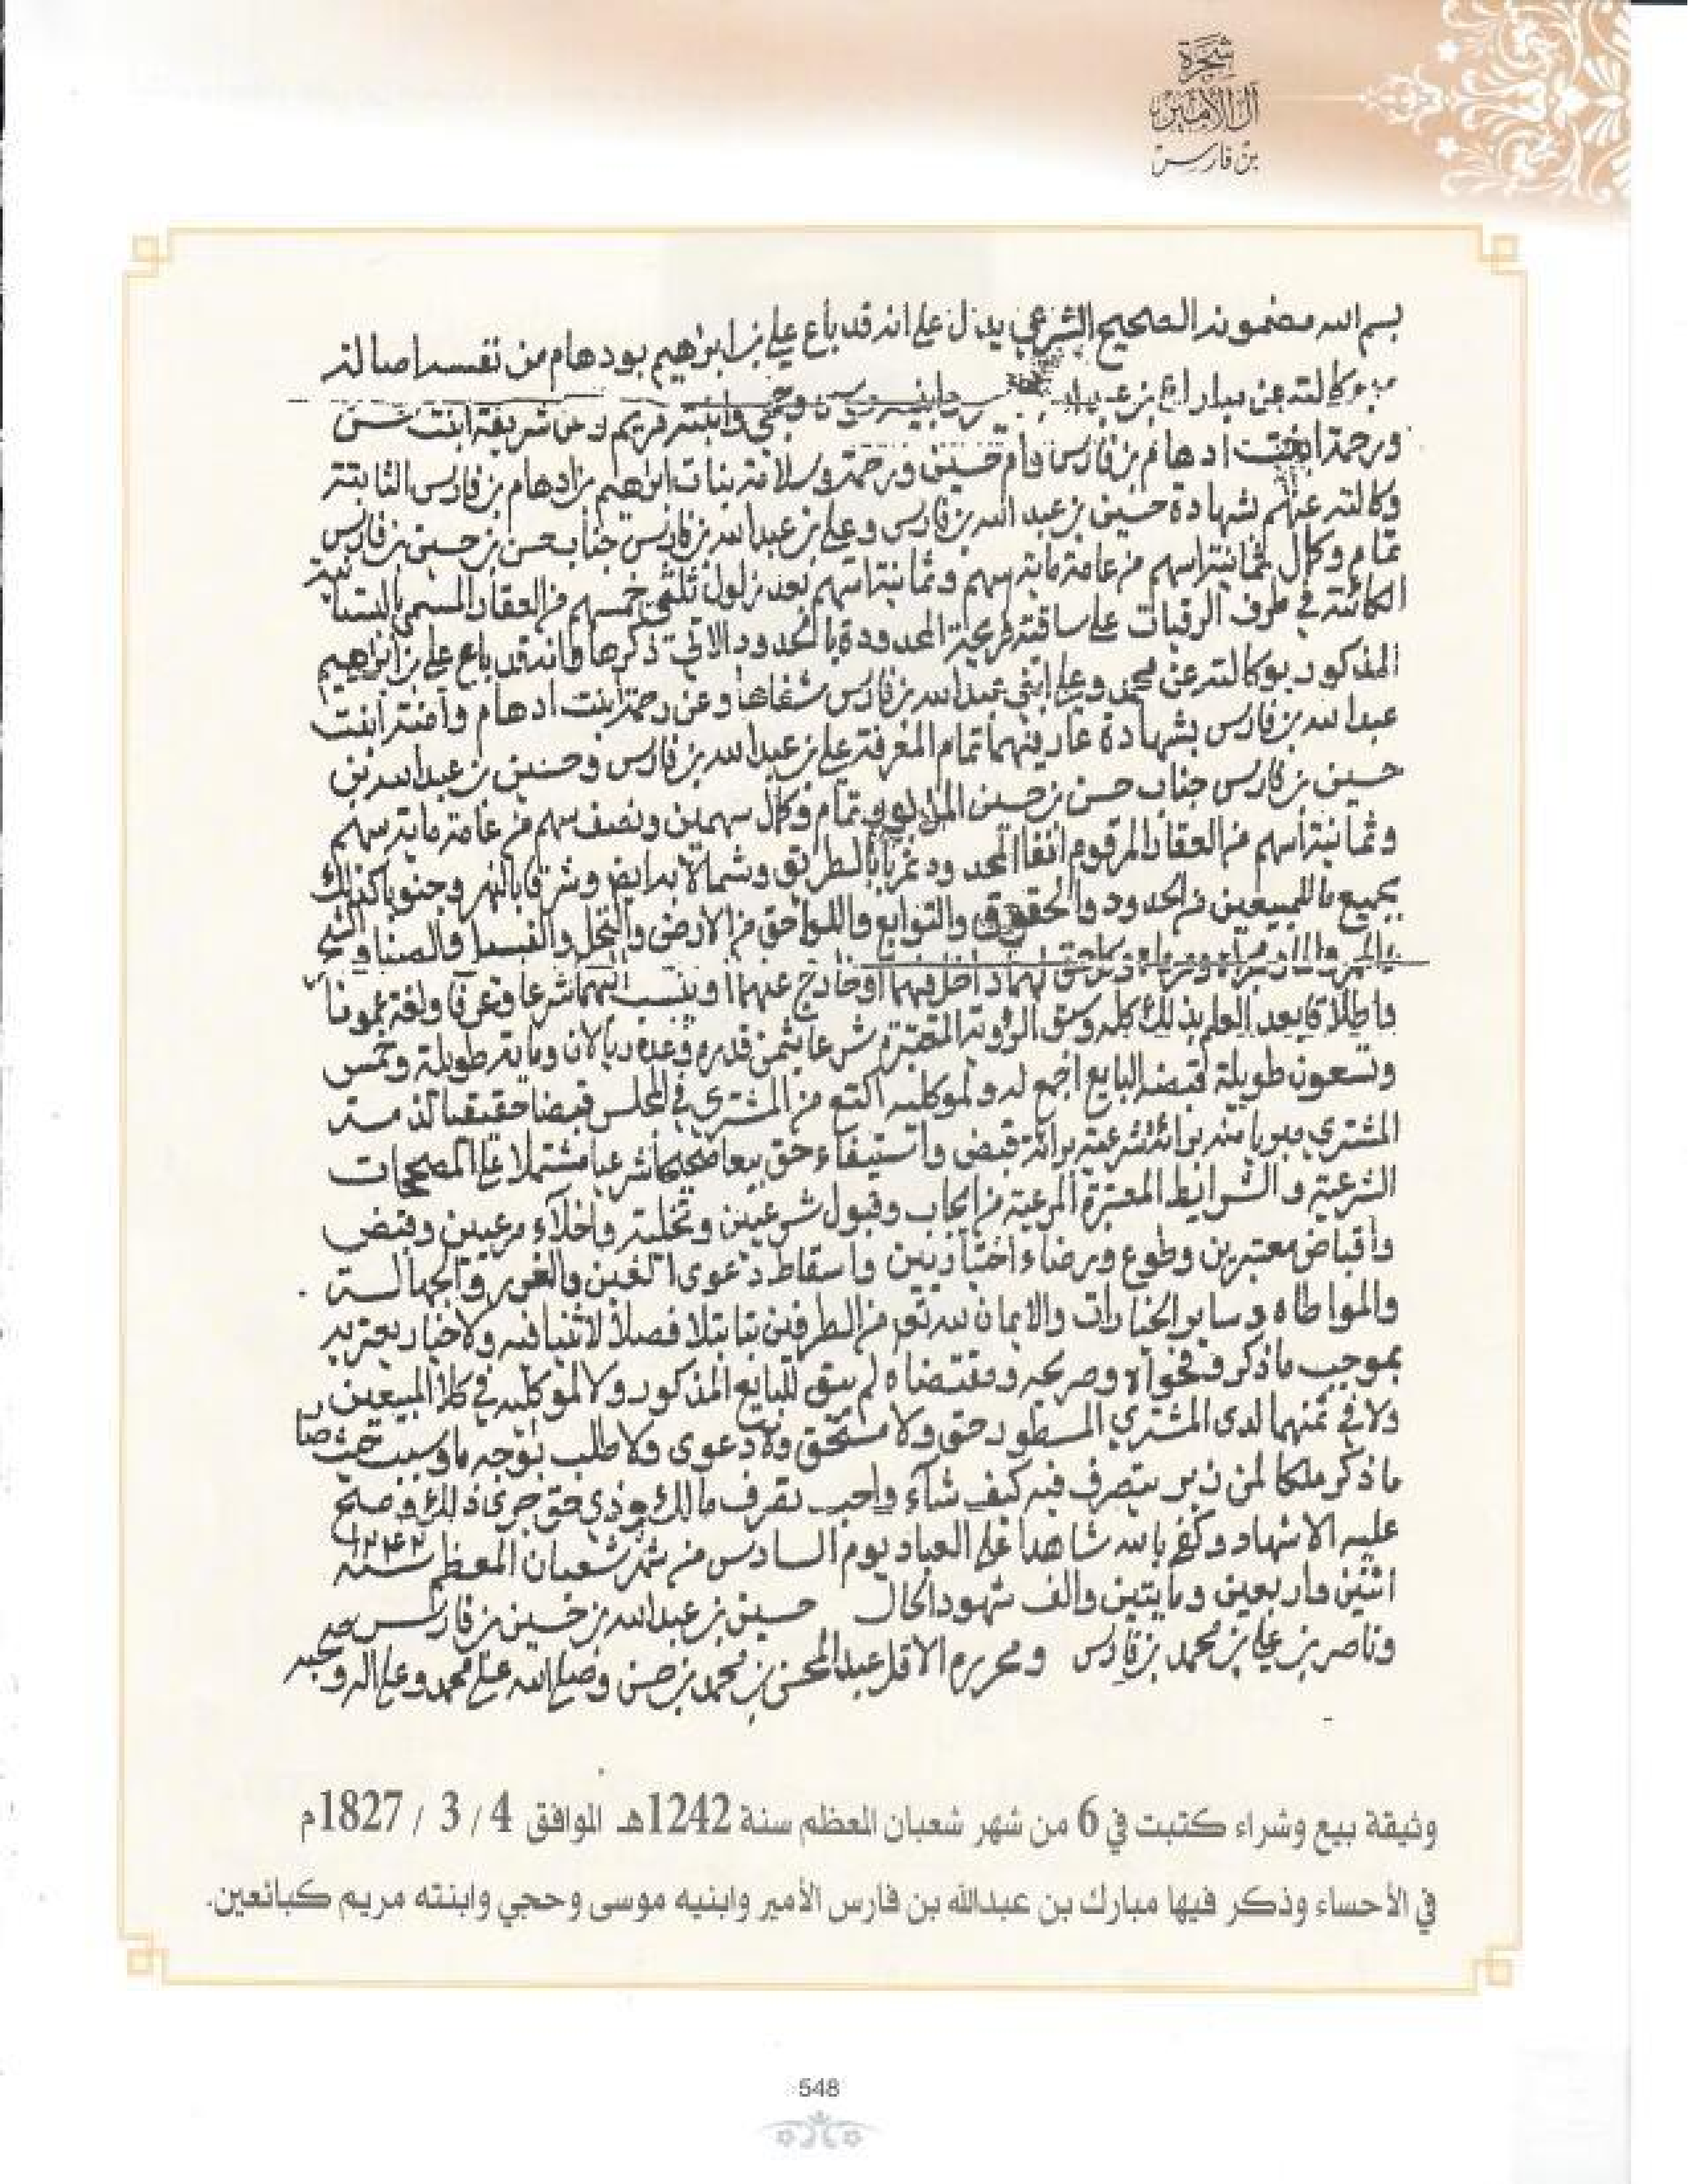 شجرة
آل الأمير
بن فارس
بسم الله مضمونه الصحيح الشرعي يدل على انه قد باع علي بن ابراهيم بودهام من نفسه اصالته
وبوكالته عن مبارك بن عبدالله وابنيه موسى وحجي وابنته مريم وعن شريفة ابنت
ورحمة ابنت ادهام بن فارس وام حسين ورحمة وسلامة بنات ابراهيم بن ادهام بن فارس الثابتة
وكالته عنهم بشهادة حسين بن عبد الله بن فارس وعلي بن عبد الله بن فارس جناب حسن بن حسين بن فارس
تمام وكمال ثمانية اسهم من عامة ماية سهم وثمانية اسهم بعد نزول ثلثي خمسهم من العقار المسمى
الكائنة في طرف الرقيات على ساقية المحدودة بالحدود الاتي ذكرها وانه قد باع علي بن ابراهيم
المذكور بوكالته عن محمد وعلي ابني عبد الله بن فارس شفاها وعن رحمة ابنت ادهام وآمنة ابنت
عبد الله بن فارس بشهادة عارفيهما تمام المعرفة علي بن عبد الله بن فارس وحسين بن عبد الله بن
حسين بن فارس جناب حسن بن حسين المزبور تمام وكمال سهمين ونصف سهم من عامة ماية سهم
وثمانية أسهم من العقار المرقوم انفا المحدود غربا بالطريق وشمالا به ايض وشرقا بالنهر وجنوبا كذلك
بجميع ما للمبيعين من الحدود والحقوق والتوابع واللواحق من الارض والنخل والفسيل
وكل حق لهما داخل فيهما او خارج عنهما او ينسب اليهما شرعا وعرفا ولغة عموما
واطلاقا بعد العلم بذلك كله وسبق الرؤية المعتبرة شرعا بثمن قدره وعدده ريالان وماية طويلة وخمس
وتسعون طويلة قبضه البايع اجمع له ولموكليه من المشتري في المجلس قبضا حقيقيا
المشتري براءة قبض واستيفاء حق بيعا صحيحا شرعيا مشتملا على المصححات
الشرعية والشرايط المعتبرة المرعية من ايجاب وقبول شرعيين وتخلية واخلاء مرعيين وقبض
واقباض معتبرين وطوع ورضاء اختيارين واسقاط دعوى الغبن والغرر والجهالة
والمواطاه وساير الخيارات والايمان لله تعالى من الطرفين بتا بتلا فصلا لاثنيا فيه ولا خيار يعتريه
بموجب ما ذكر وفحواه وصريحه ومقتضاه لم يبق للبايع المذكور ولا لموكليه في كلا المبيعين
ولا في ثمنهما لدى المشتري المسطور حق ولا مستحق ولا دعوى ولا طلب بوجه ما وسبب حيث صار
ما ذكر ملكا لمن زبر يتصرف فيه كيف شاء واحب تصرف مالك وذي حق جرى ذلك وصح
عليه الاشهاد وكفى بالله شاهدا على العباد يوم السادس من شهر شعبان المعظم سنة ١٢٤٢
اثنين واربعين ومايتين والف شهود الحال حسين بن عبد الله بن حسين بن فارس
وناصر بن علي بن محمد بن فارس ومحرره الاقل عبد المحسن بن محمد بن حسن وصلى الله على محمد وعلى اله وصحبه
وثيقة بيع وشراء كتبت في 6 من شهر شعبان المعظم سنة 1242هـ الموافق 4 / 3 / 1827م
في الأحساء وذكر فيها مبارك بن عبدالله بن فارس الأمير وابنيه موسى وحجي وابنته مريم كبائعين.
548